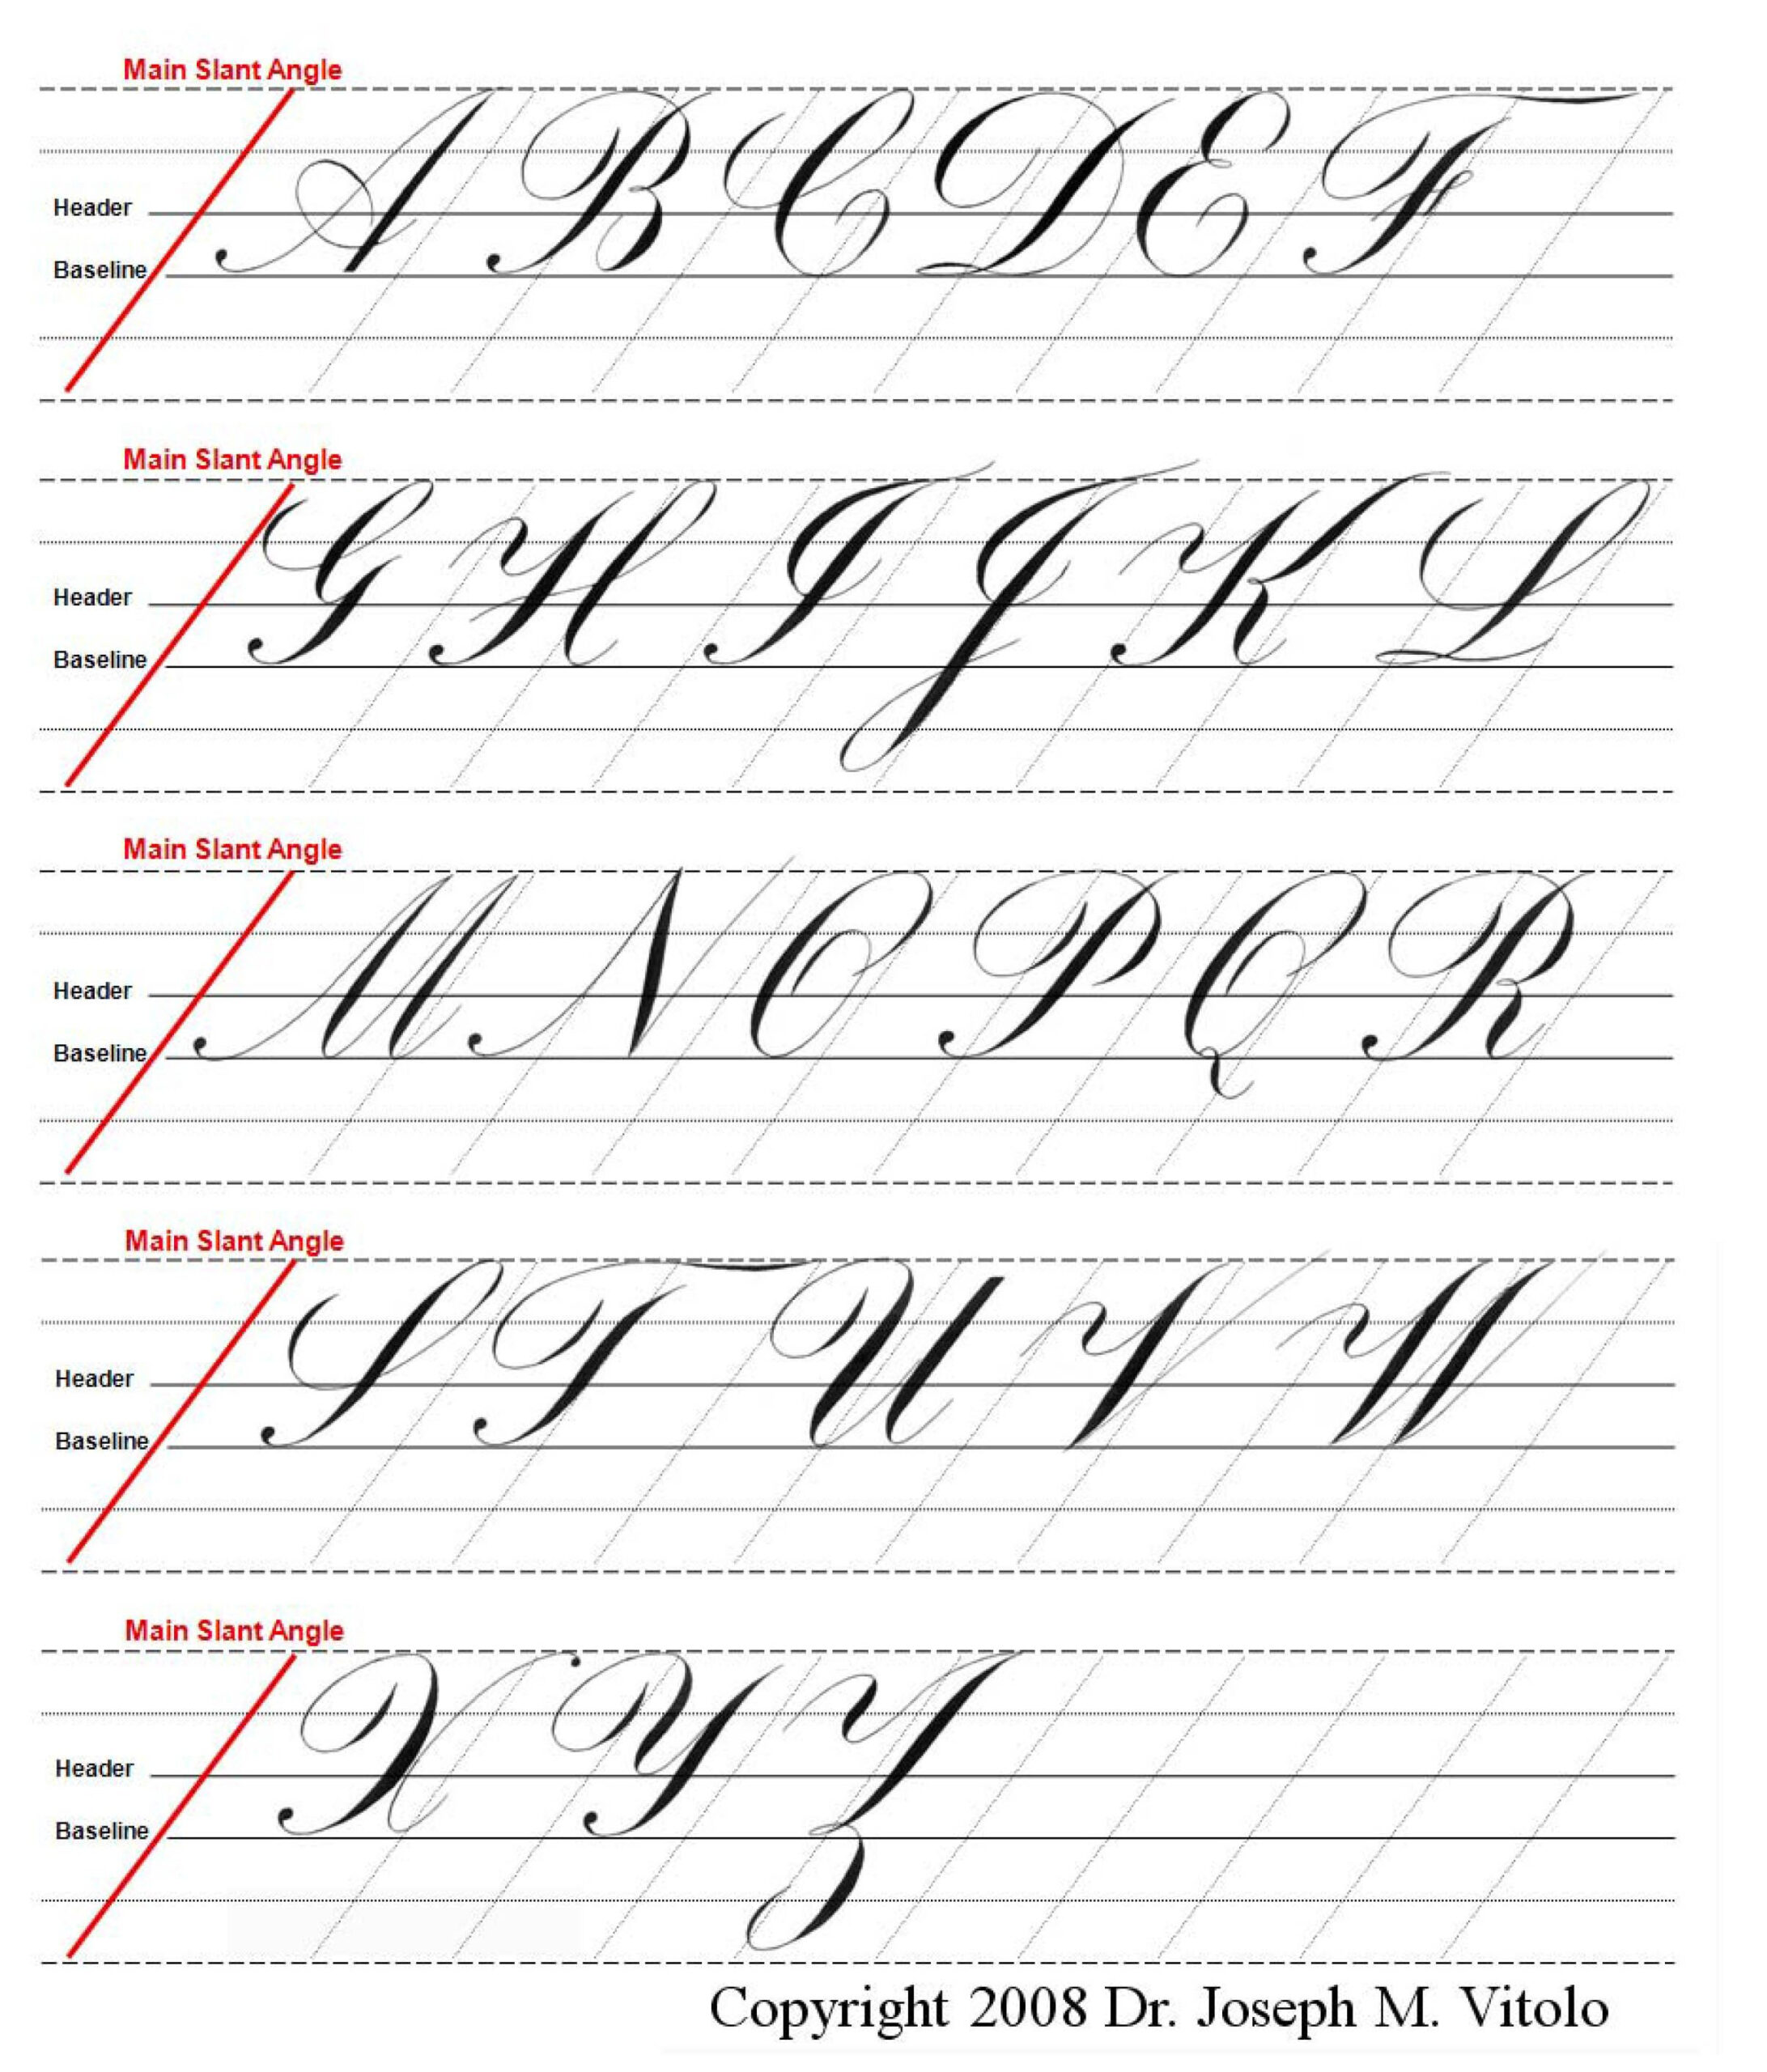 Main Slant Angle
A B C D E F
Header
Baseline
Main Slant Angle
G H I J K L
Header
Baseline
Main Slant Angle
M N O P Q R
Header
Baseline
Main Slant Angle
S T U V W
Header
Baseline
Main Slant Angle
X Y Z
Header
Baseline
Copyright 2008 Dr. Joseph M. Vitolo